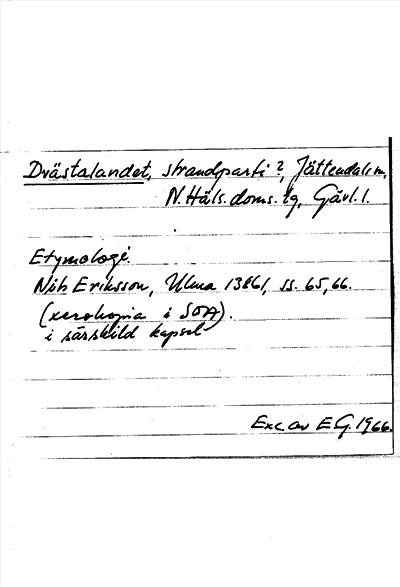 Drästalandet, strandparti?, Jättendals sn,
N. Häls. doms. lg, Gävl. l.
Etymologi.
Nils Eriksson, Ulma 13861, ss. 65, 66.
(xerokopia i SOA).
i särskild kapsel
Exc. av EG. 1966.